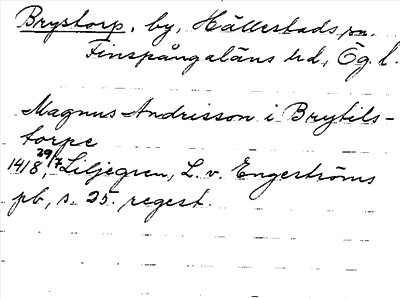 Brystorp, by, Hällestads sn.
Finspångaläns hd, Ög. l.
Magnus Andrisson i Brytils-
torpe
1418 29/7, Liljegren, L. v. Engeströms
pb, s. 25. regest.